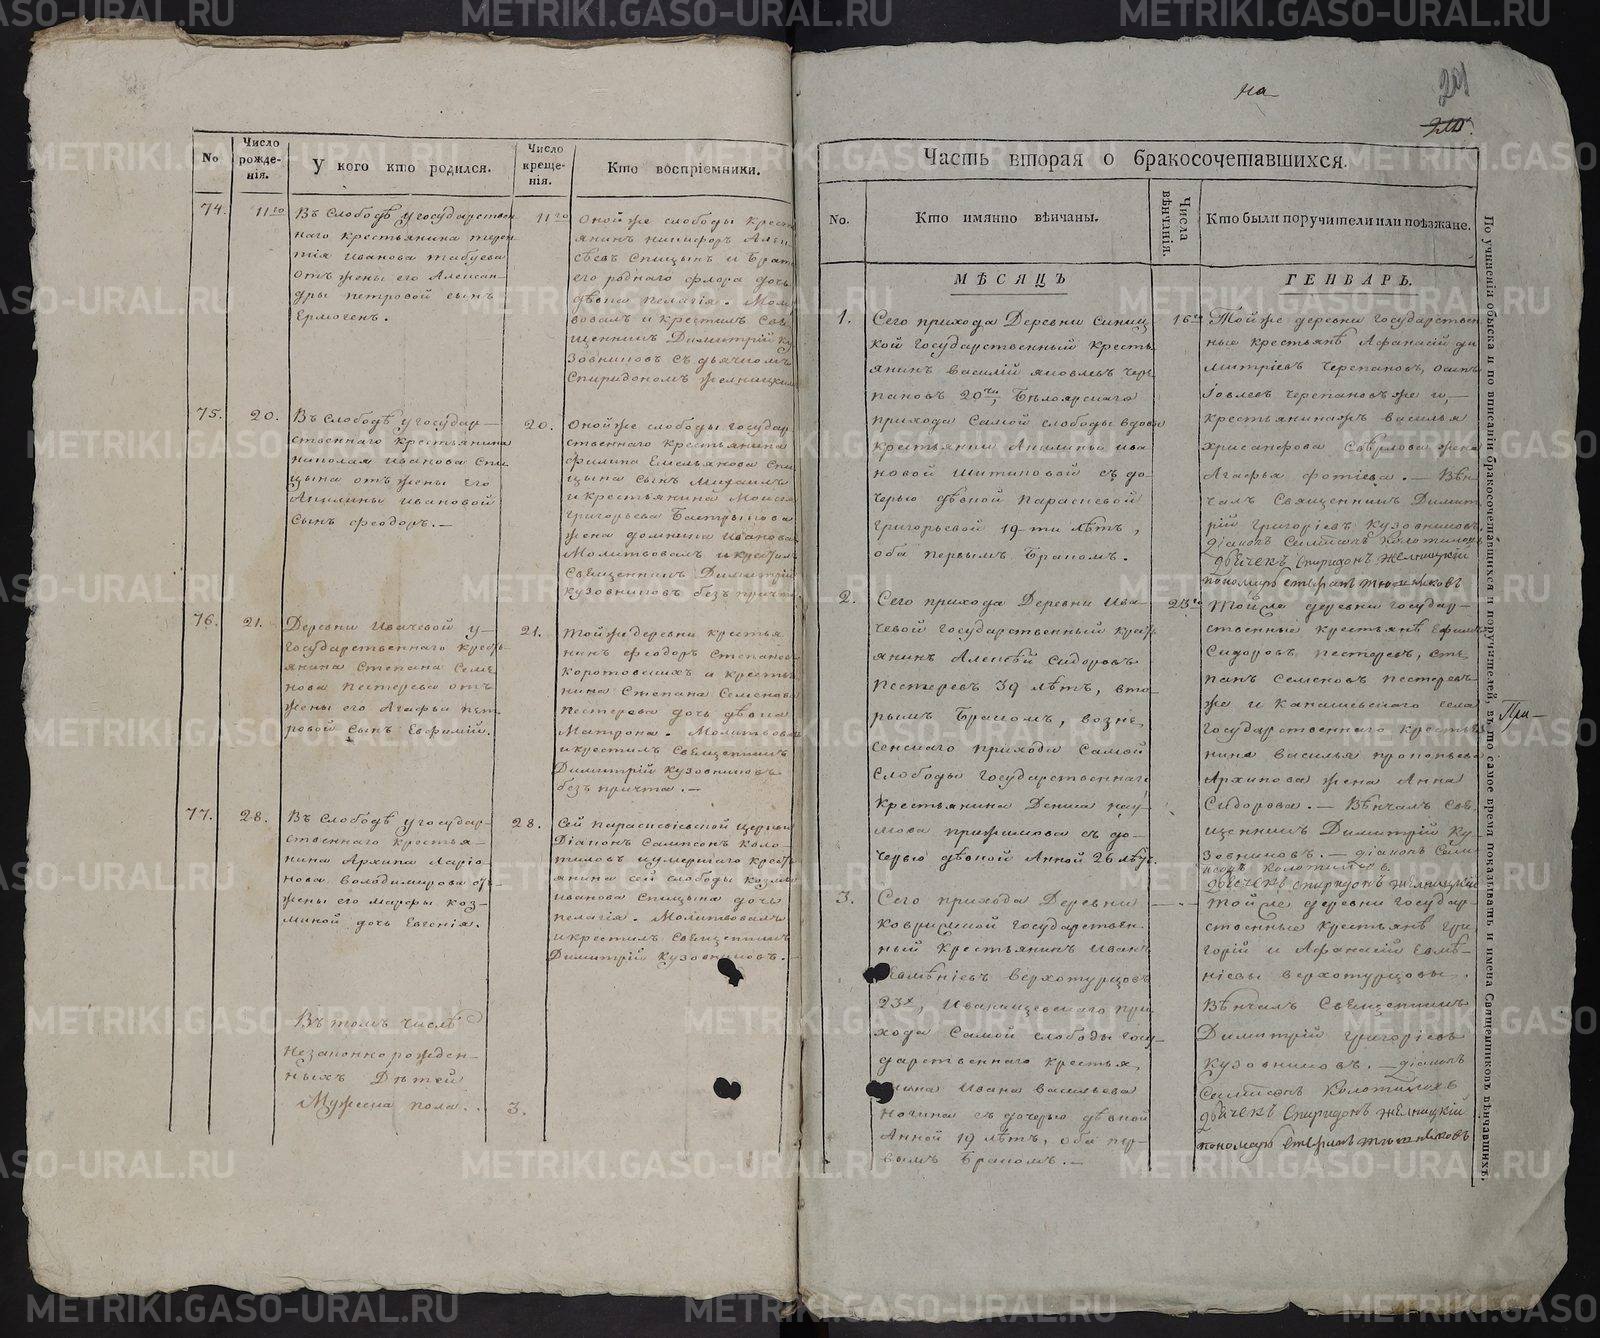 No
Число рожде-нія.
У кого кто родился.
Число креще-нія.
Кто воспріемники.
74.
11го
Въ Слободѣ у государствен
наго крестьянина терен
тія Иванова
отъ жены его Алексан
дры петровой сынъ
Ермогенъ.
11го
Оной же слободы кресть
янинъ никифоръ Алек
сѣевъ Спицынъ и брата
его роднаго флора дочь
дѣвка пелагія. Молит
вовалъ и крестилъ Свя
щенникъ Димитрій Ку
зовниковъ съ дьячкомъ
Спиридономъ желницким
75.
20.
Въ Слободѣ у государ—
ственнаго крестьянина
николая Иванова Спи
цына отъ жены его
Акилины Ивановой
сынъ феодоръ.—
20.
Оной же слободы государ
ственнаго крестьянина
филипа Емельянова Спи
цына сынъ Михаилъ
и крестьянина Моисея
григорьева
жена домника Иванова
Молитвовалъ и крестилъ
Священникъ Димитрій
Кузовниковъ безъ причта.
76.
21.
Деревни Ивачевой у—
государственнаго кресть
янина Степана Семе
нова пестерева отъ
жены его Агафьи пет
ровой сынъ Евфимій.
21.
Той же деревни крестья
нинъ феодоръ Степановъ
Коротовскихъ и кресть
янина Степана Семенова
пестерева дочь дѣвка
Матрона. Молитвовалъ
и крестилъ Священникъ
Димитрій Кузовниковъ
безъ причта.—
77.
28.
Въ Слободѣ у государ—
ственнаго крестья—
нина Архипа Ларіо—
нова Володимирова отъ
жены его марфы Коз—
миной дочь Евгенія.
28.
Сей параскевіевской церкви
Діаконъ Сампсонъ Коло—
тиловъ и умершаго кресть
янина сей слободы Козмы
Иванова Спицына дочь
пелагія. Молитвовалъ
и крестилъ Священникъ
Димитрій Кузовниковъ.—
Въ томъ числѣ
Незаконнорожден—
ныхъ Дѣтей
Мужеска пола. . 3.
на
Часть вторая о бракосочетавшихся.
No.
Кто имянно вѣнчаны.
Числа вѣнчанія.
Кто были поручители или поѣзжане.
МѢСЯЦЪ
ГЕНВАРЬ.
1.
Сего прихода Деревни синиц
кой государственный кресть
янинъ василій яковлевъ чере
пановъ 20ти, Бѣлоярскаго
прихода Самой слободы вдовы
крестьянки Акилины ива
новой шитиковой съ до—
черью дѣвкой Параскевой
григорьевой 19-ти лѣтъ,
оба первымъ бракомъ.
16го
Той же деревни государствен
ные крестьянѣ Афанасій ди
митріевъ черепановъ, осипъ
іовлевъ черепановъ же и,—
крестьянина василья
хрисанфова Свѣрлова жена
Агафья фотіева.— Вѣн
чалъ Священникъ Димит
рій григоріевъ Кузовниковъ
діаконъ Сампсонъ Колотиловъ
дьячекъ Спиридонъ Желницкій
пономарь
2.
Сего прихода Деревни Ива—
чевой государственный кресть
янинъ Алексѣй сидоровъ
пестеревъ 39 лѣтъ, вто—
рымъ бракомъ, возне
сенскаго прихода самой
слободы государственнаго
крестьянина Дениса нау—
мова прижимова съ до—
черью дѣвкой Анной 26 лѣтъ.
23го
Той же деревни государ—
ственные крестьянѣ Ефимъ
Сидоровъ пестеревъ, сте
панъ семеновъ пестеревъ
же и канашевскаго села
государственнаго крестья
нина василья прокопьева
Архипова жена Анна
Сидорова.— Вѣнчалъ Свя
щенникъ Димитрій Ку—
зовниковъ.— діаконъ Самп
сонъ Колотиловъ.
дьячекъ Спиридонъ Желницкій
3.
Сего прихода Деревни
ковригиной государствен
ный крестьянинъ Иванъ
Евмѣніевъ верхотурцовъ
23х, Ивакинцевскаго при
хода Самой слободы госу—
дарственнаго крестья
нина Ивана васильева
ногина съ дочерью дѣвкой
Анной 19 лѣтъ, оба пер—
вымъ бракомъ.—
— . -
Той же деревни государ—
ственные крестьянѣ гри
горій и Афанасій Евмѣ—
ніевы верхотурцовы.
Вѣнчалъ Священникъ
Димитрій григоріевъ
Кузовниковъ.— діаконъ
Сампсонъ Колотиловъ
дьячекъ Спиридонъ Желницкій
пономарь
По учиненіи обыска и по вписаніи бракосочетавшихся и поручителей, въ то самое время показывать и имена Священниковъ вѣнчавшихъ.
При—
METRIKI.GASO-URAL.RU